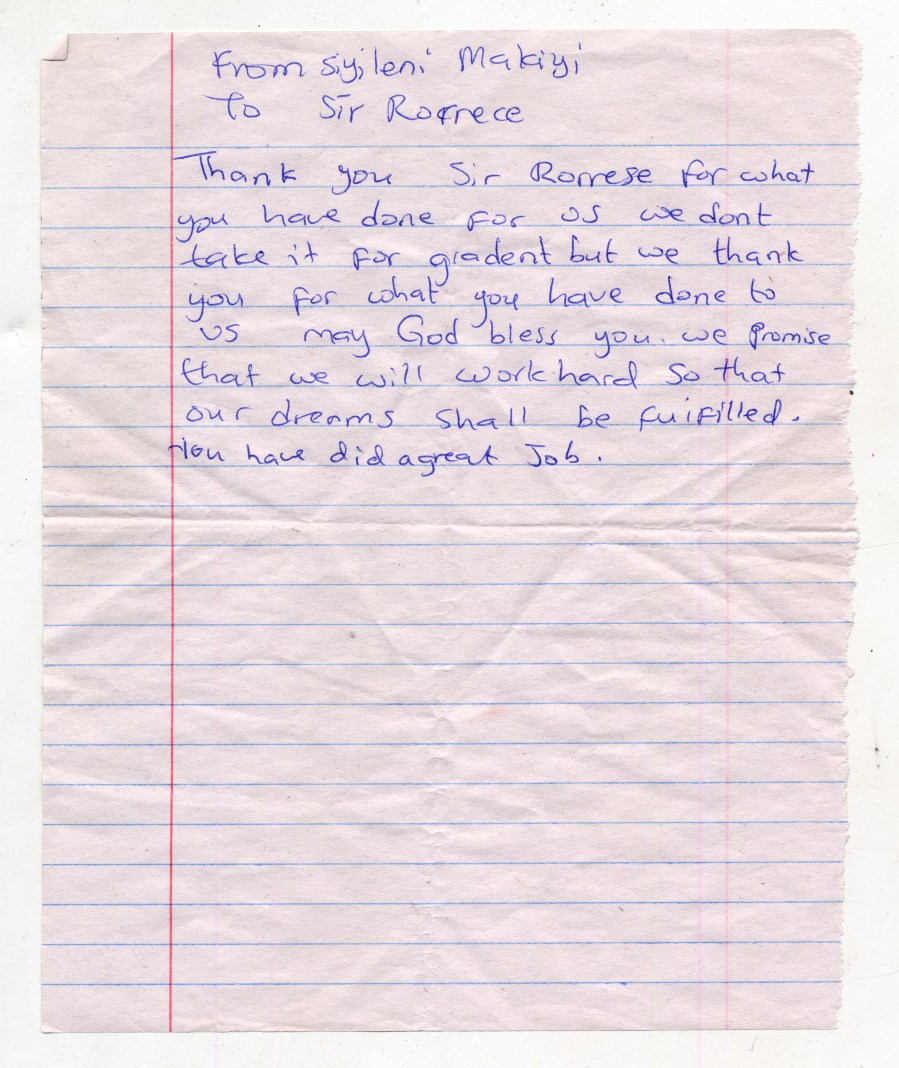 From Siyileni Makiyi
To Sir Rofrece
Thank you Sir Rorrese for what
you have done for us we dont
take it for gradent but we thank
you for what you have done to
us may God bless you. we promise
that we will work hard so that
our dreams shall be fuifilled.
You have did a great Job.